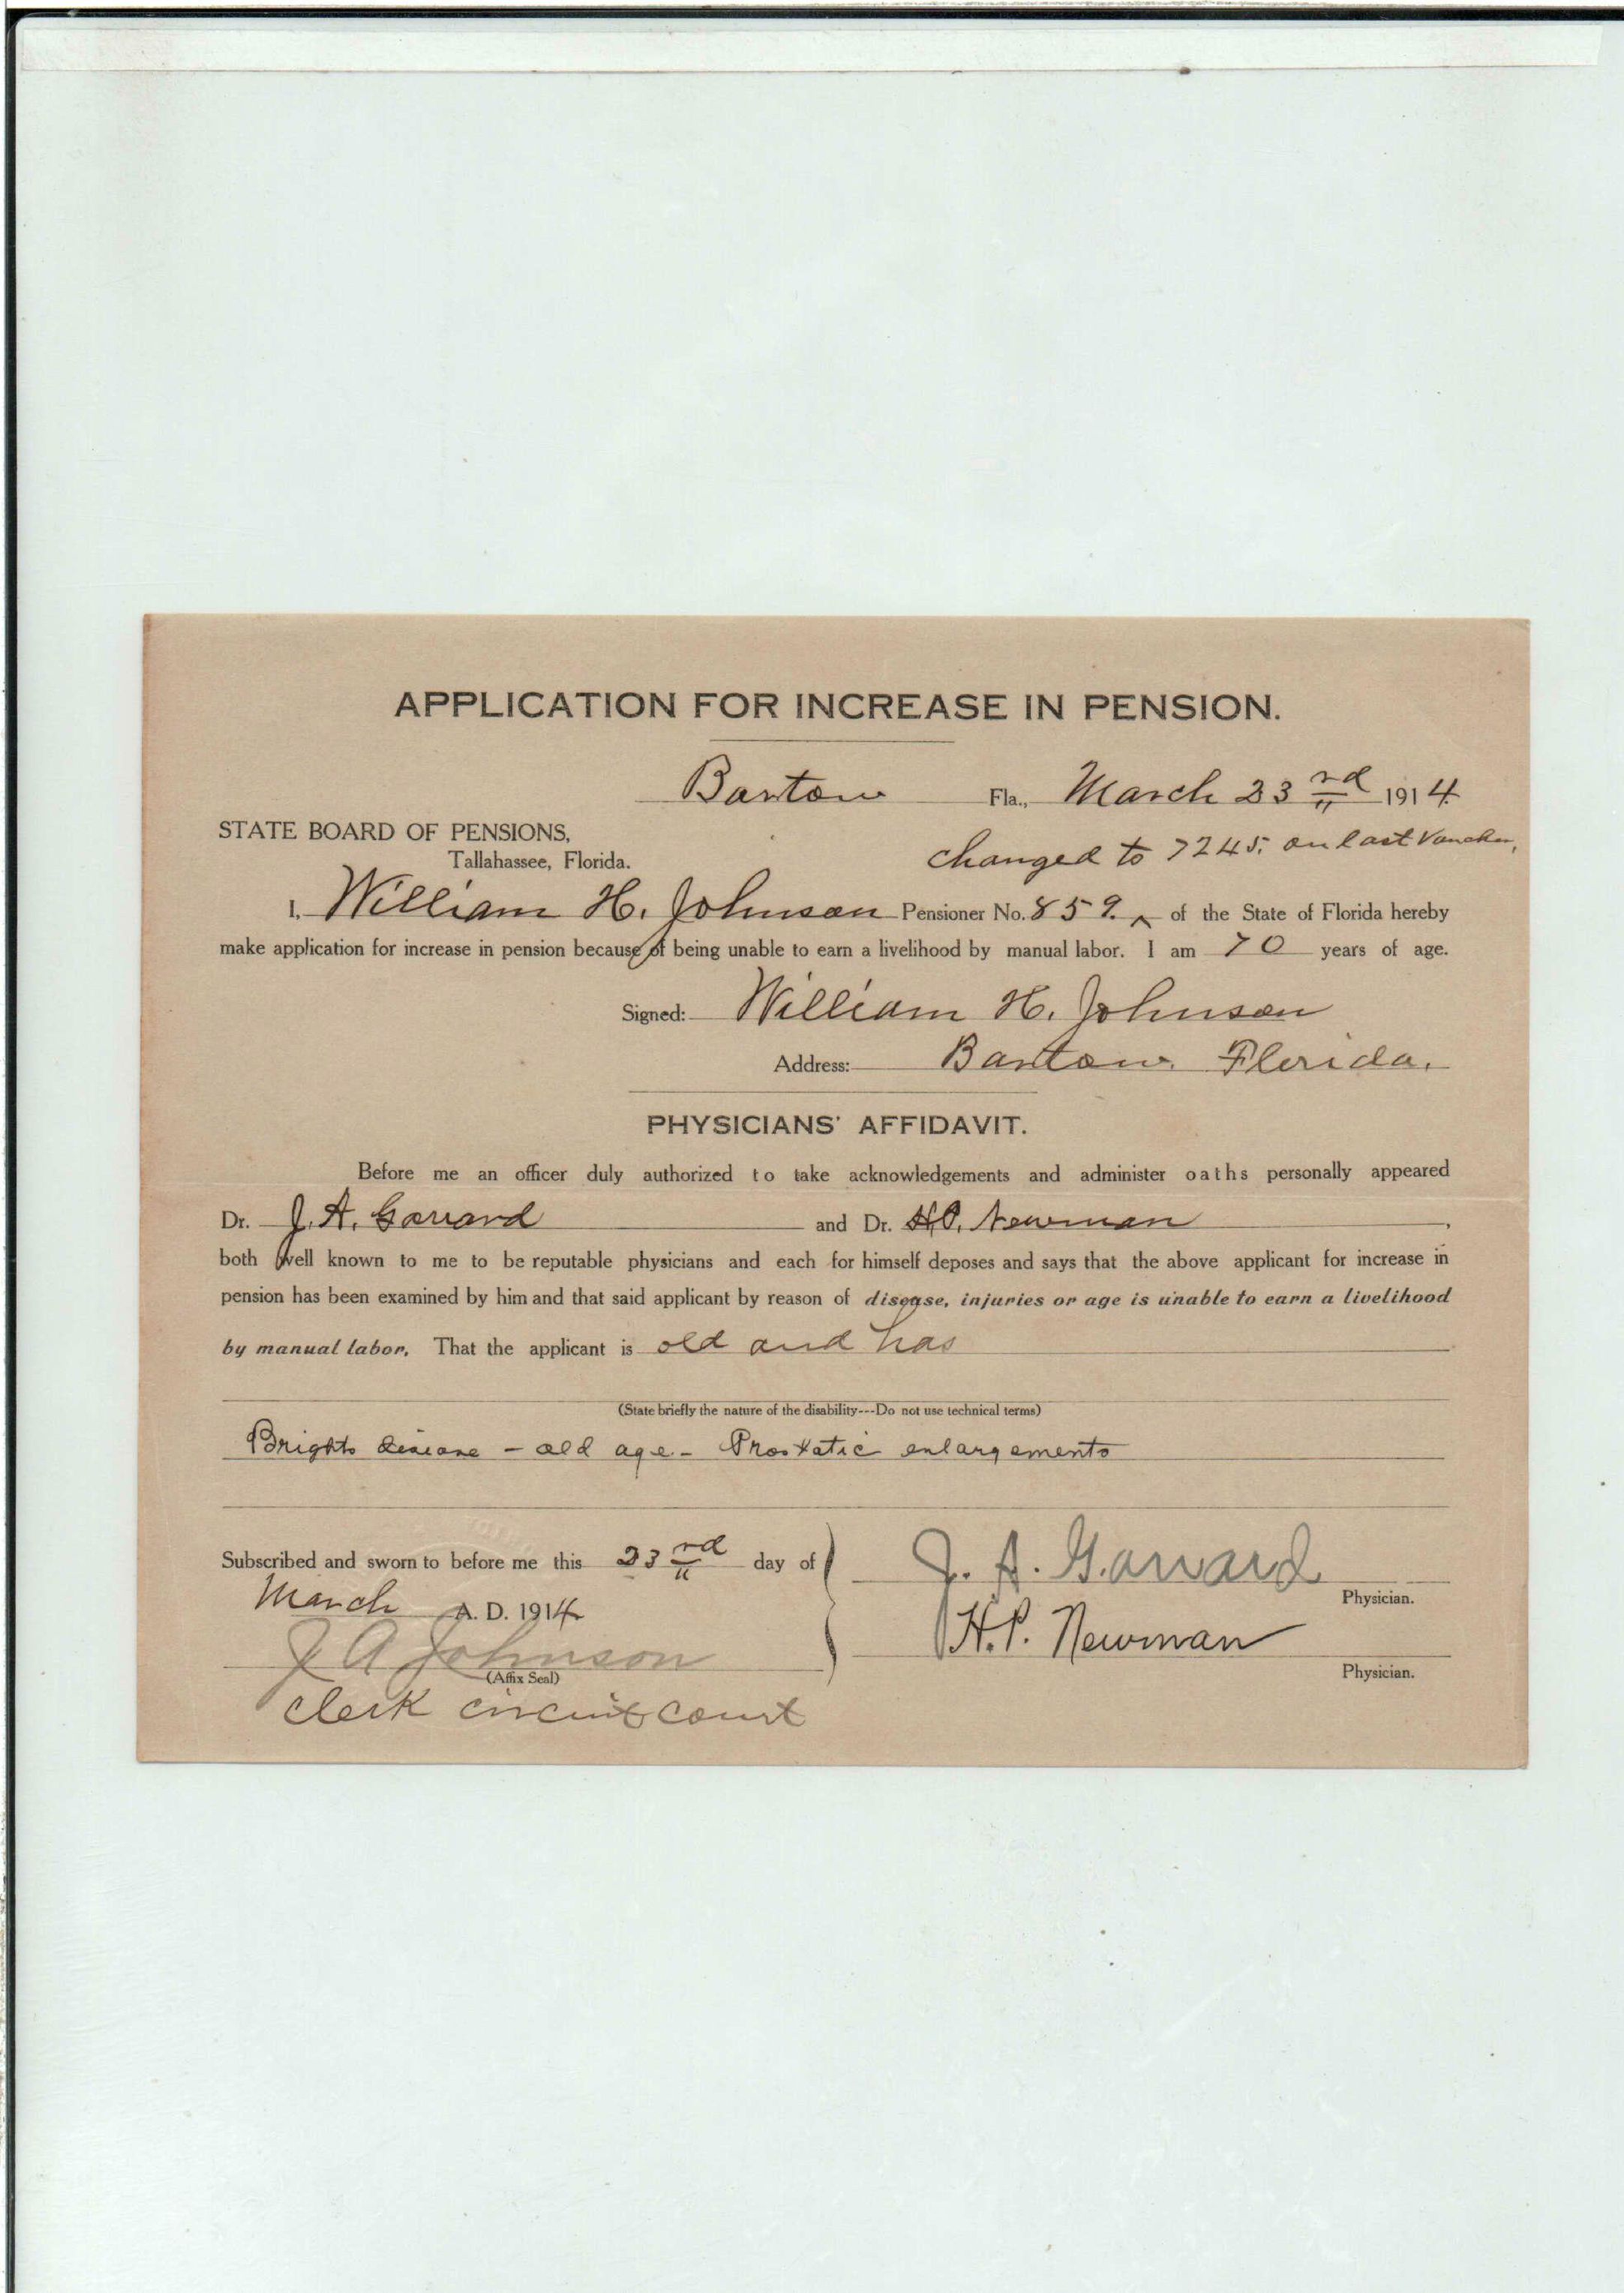 APPLICATION FOR INCREASE IN PENSION.
Bartow Fla., March 23rd 1914
STATE BOARD OF PENSIONS,
Tallahassee, Florida.
changed to 7245. on last Voucher,
I, William H. Johnson Pensioner No. 859. ^ of the State of Florida hereby
make application for increase in pension because of being unable to earn a livelihood by manual labor. I am 70 years of age.
Signed: William H. Johnson
Address: Bartow. Florida.
PHYSICIANS' AFFIDAVIT.
Before me an officer duly authorized to take acknowledgements and administer oaths personally appeared
Dr. J. A. Garrard and Dr. H.P. Newman,
both well known to me to be reputable physicians and each for himself deposes and says that the above applicant for increase in
pension has been examined by him and that said applicant by reason of disease, injuries or age is unable to earn a livelihood
by manual labor. That the applicant is old and has
(State briefly the nature of the disability---Do not use technical terms)
Brights disease - old age - Prostatic enlargements
Subscribed and sworn to before me this 23rd day of
March A. D. 1914
J. A. Garrard
Physician.
J A Johnson
(Affix Seal)
H.P. Newman
Physician.
Clerk circuit court